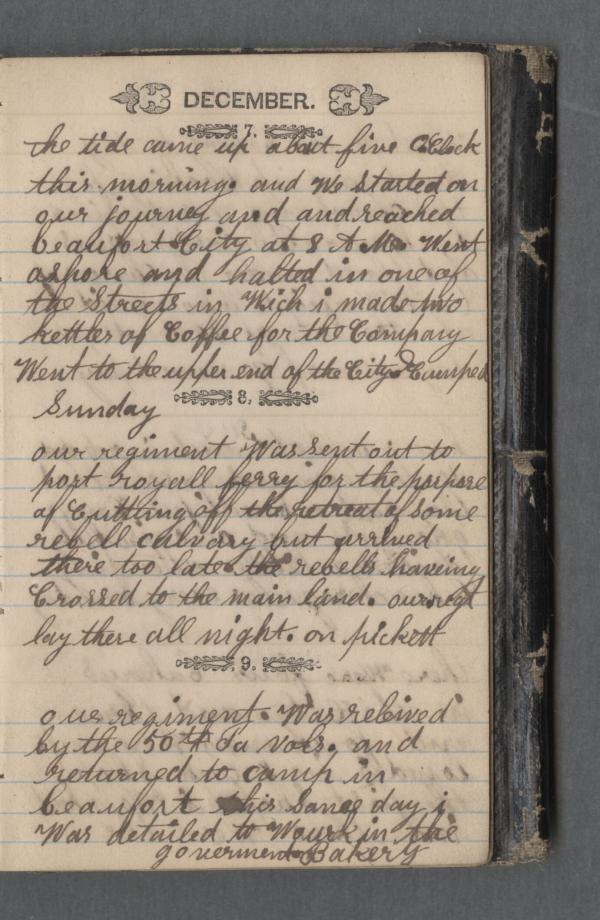 DECEMBER.
7.
the tide came up about five OClock
this morning. and We Started on
our journey and and reached
beaufort City at 8 A.M. Went
ashore and halted in one of
the Streets in Wich i made two
kettles of Coffee for the Company
Went to the upper end of the City & Cumped
8.
Sunday
our regiment Was sent out to
port royall ferry for the porpose
of Cuttting off the retreat of some
rebell calvary but arrived
there too late. the rebells haveing
Crossed to the main land. our regt
lay there all night. on pickett
9.
our regiment. Was releived
by the 50th Pa vols. and
returned to camp in
beaufort this same day i
Was detailed to Wourk in the
goverment Bakery